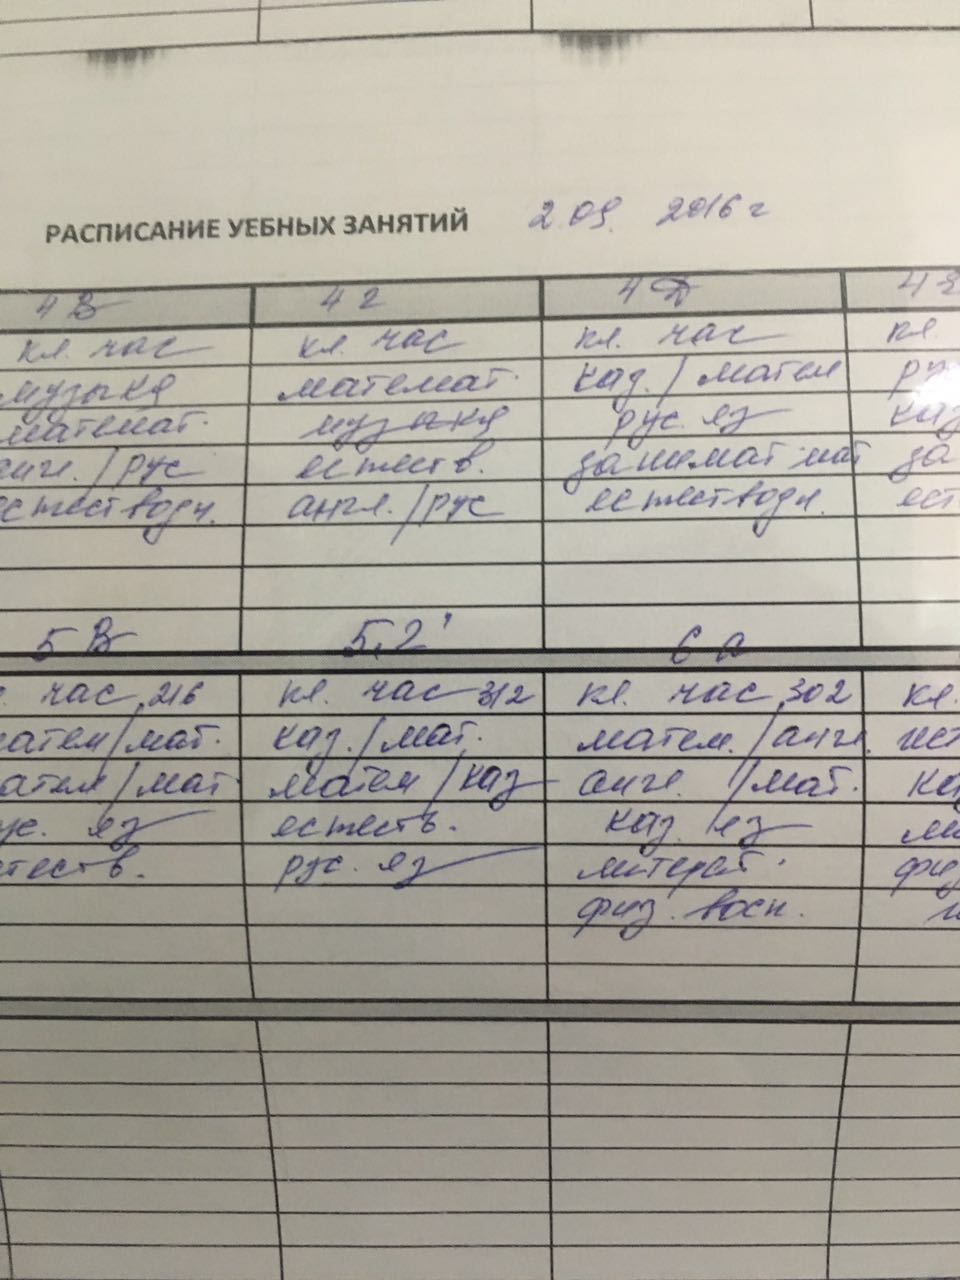 РАСПИСАНИЕ УЕБНЫХ ЗАНЯТИЙ 2.09. 2016 г
4 В 4 г 4 Д 4
кл. час кл. час кл. час кл.
музыка математ. каз. / матем ру
математ. музыка рус. яз каз
англ. / рус естеств. занимат мат за
естествозн. англ. / рус естествозн. ест
5 В 5 г 6 а
час 216 кл. час 312 кл. час 302 кл.
матем / мат. каз. / мат. матем. / англ. ист
матем / мат матем / каз англ. / мат. ка
рус. яз естеств. каз. яз
естеств. рус. яз литерат. физ
физ. восп.